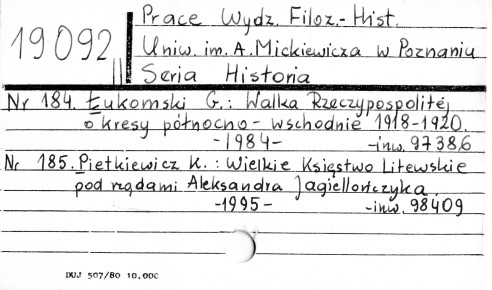 19092
Prace Wydz. Filoz.-Hist.
Uniw. im. A. Mickiewicza w Poznaniu
Seria Historia
Nr 184. Łukomski G.: Walka Rzeczypospolitej
o kresy północno-wschodnie 1918-1920.
-1984- -inw. 97386
Nr 185. Pietkiewicz K.: Wielkie Księstwo Litewskie
pod rządami Aleksandra Jagiellończyka.
-1995- -inw. 98409
DUJ 507/80 10.000